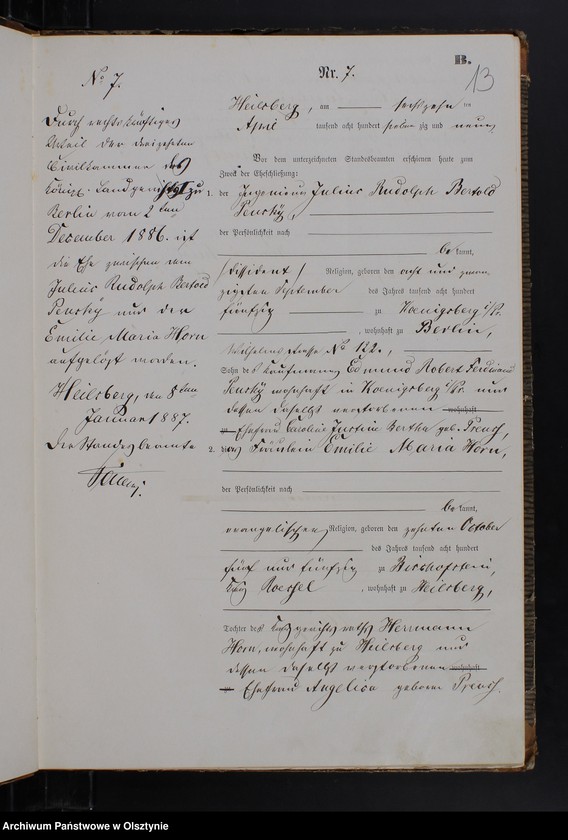 B.
13
Nr. 7.
Heilsberg, am sechszehn ten
April tausend acht hundert siebenzig und neun,
Vor dem unterzeichneten Standesbeamten erschienen heute zum
Zweck der Eheschließung:
1. der Ingenieur Julius Rudolph Bertold
Pensky,
der Persönlichkeit nach
be kannt,
/Dissident/ Religion, geboren den acht und zwan
zigsten September des Jahres tausend acht hundert
fünfzig zu Koenigsberg i/Pr.
, wohnhaft zu Berlin,
Wilhelmstrasse No 122.,
Sohn des Kaufmanns Edmund Robert Ferdinand
Pensky wohnhaft in Koenigsberg i/Pr. und
dessen daselbst verstorbenen wohnhaft
zu Ehefrau Caroline Justine Bertha geb. Preusch,
2. Fräulein Emilie Maria Horn,
der Persönlichkeit nach
be kannt,
evangelischer Religion, geboren den zehnten October
des Jahres tausend acht hundert
fünf und fünfzig zu Bischofstein,
Kreis Roessel, wohnhaft zu Heilsberg,
Tochter des Kreisgerichtsraths Herrmann
Horn, wohnhaft zu Heilsberg und
dessen daselbst verstorbenen wohnhaft
zu Ehefrau Angelica geborene Preusch.
No 7.
Durch rechtskräftiges
Urteil der dreizehnten
Civilkammer des
Königl. Landgerichts I zu
Berlin vom 2 ten
Dezember 1886. ist
die Ehe zwischen dem
Julius Rudolph Bertold
Pensky und der
Emilie Maria Horn
aufgelöst worden.
Heilsberg, den 8 ten
Januar 1887.
Der Standesbeamte
Archiwum Państwowe w Olsztynie